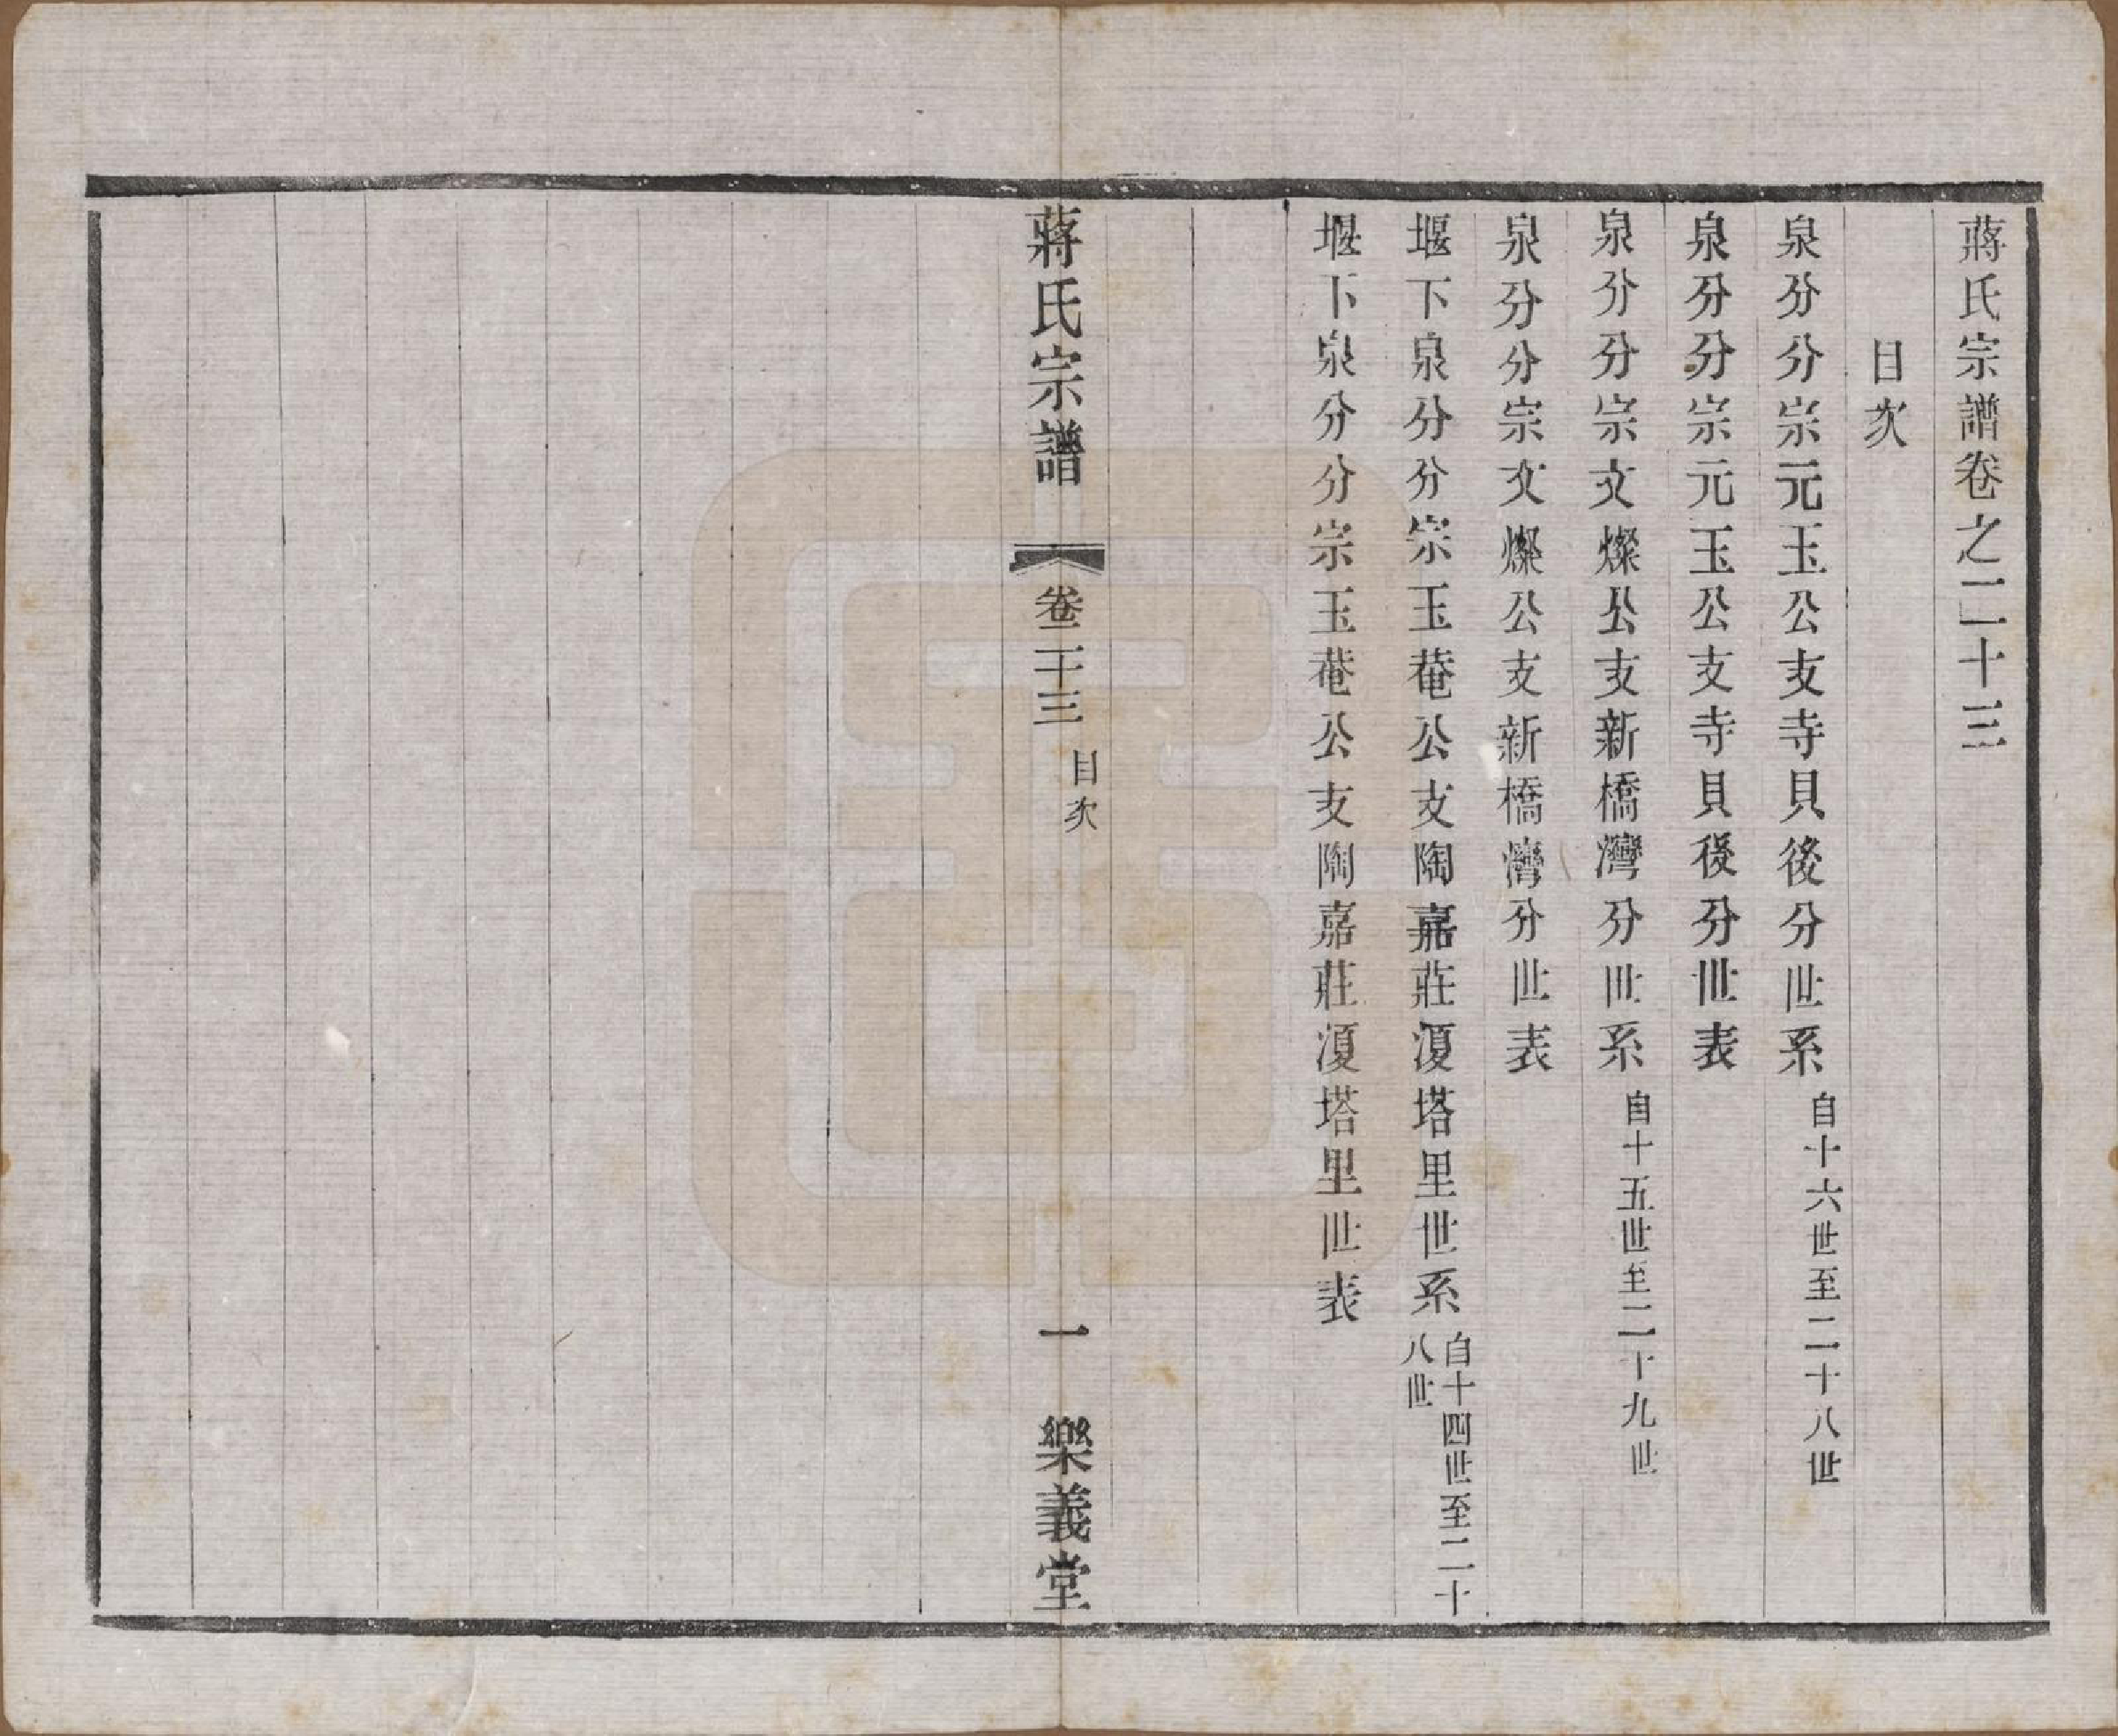 蔣氏宗譜卷之二十三
目次
泉分分宗元玉公支寺貝後分世系自十六世至二十八世
泉分分宗元玉公支寺貝後分世表
泉分分宗文燦公支新橋灣分世系自十五世至二十九世
泉分分宗文燦公支新橋灣分世表
堰下泉分分宗玉菴公支陶嘉莊溭塔里世系自十四世至二十八世
堰下泉分分宗玉菴公支陶嘉莊溭塔里世表
蔣氏宗譜 卷二十三 目次 一 樂義堂